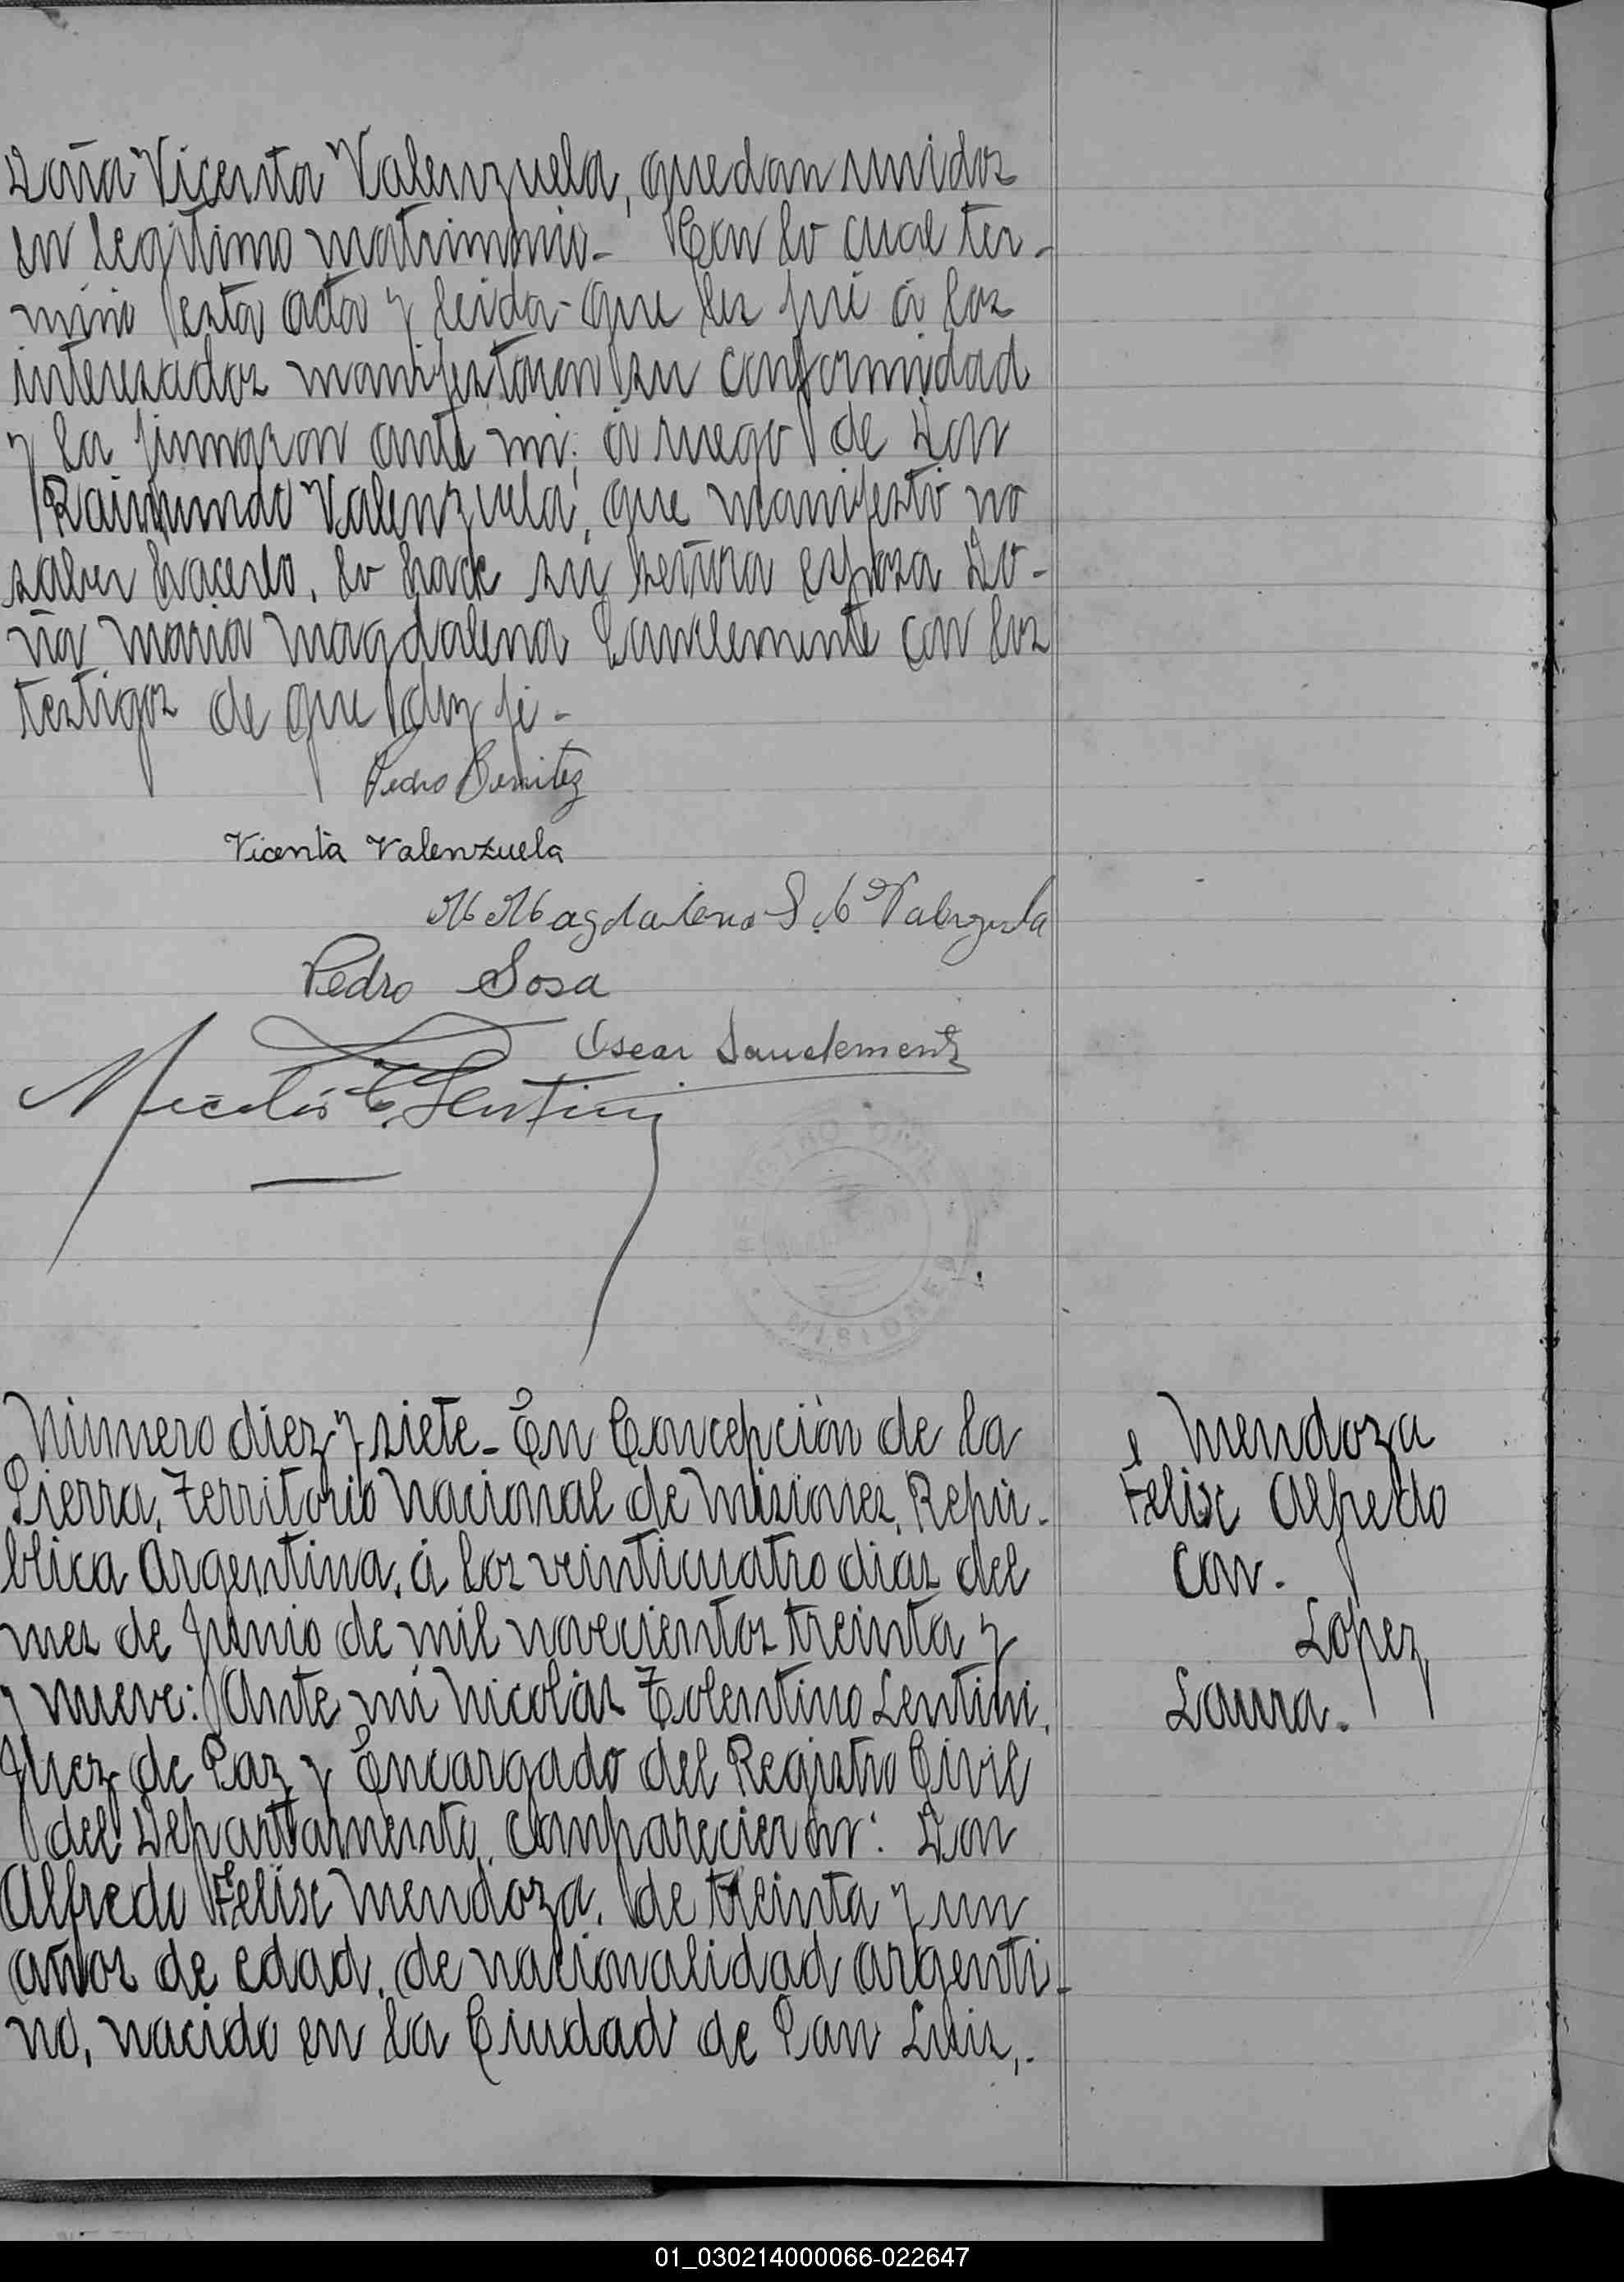 Doña Vicenta Valenzuela, quedan unidos
en legítimo matrimonio- Con lo cual ter-
minó esta acta y leida que les fué á los
interesados manifestaron su conformidad
y la firmaron ante mi; á ruego de Don
Raimundo Valenzuela, que manifestó no
saber hacerlo, lo hace su señora esposa Do-
ña Maria Magdalena Sanclemente con los
testigos de que doy fé-
Pedro Benitez
Vicenta Valenzuela
M Magdalena S. de Valenzuela
Pedro Sosa
Oscar Sanclemente
Nicolás T. Lentini
REGISTRO CIVIL
MISIONES
Número diez y siete- En Concepción de la
Sierra, Territorio Nacional de Misiones, Repú-
blica Argentina, á los veinticuatro dias del
mes de Junio de mil novecientos treinta y
y nueve: Ante mi Nicolás Tolentino Lentini,
Juez de Paz y Encargado del Registro Civil
del Departamento, comparecieron: Don
Alfredo Felise Mendoza, de treinta y un
años de edad, de nacionalidad argenti-
no, nacido en la Ciudad de San Luis,.
Mendoza
Felise Alfredo
con.
Lopez
Laura.
01_030214000066-022647